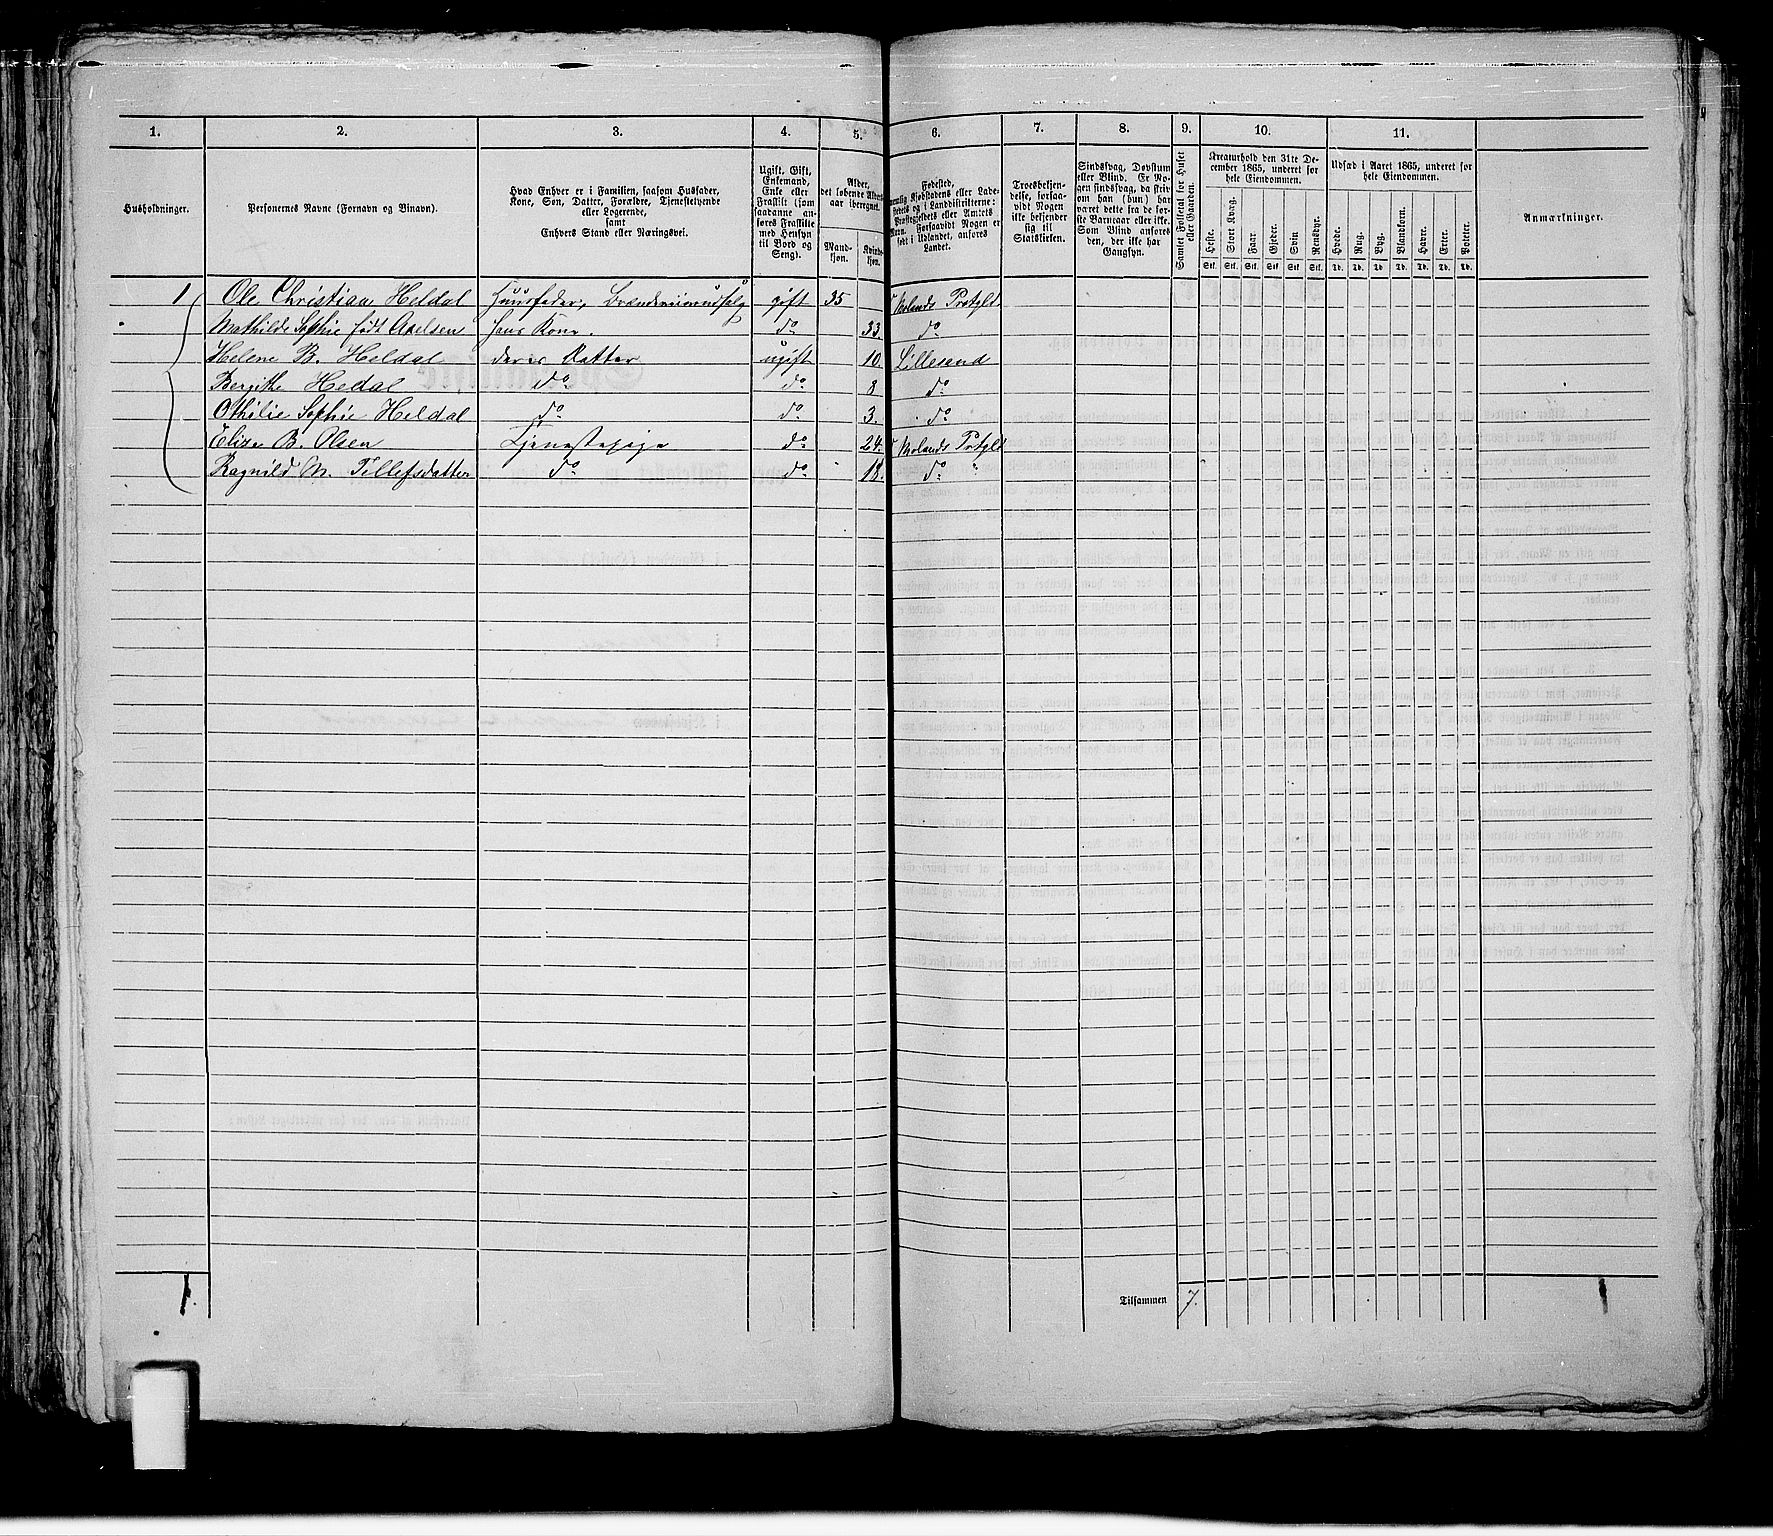 1. 2. 3. 4. 5. 6. 7. 8. 9. 10. 11.
Husholdninger.
Personernes Navne (Fornavn og Binavn).
Hvad Enhver er i Familien, saasom Husfader,
Kone, Søn, Datter, Forældre, Tjenestetyende
eller Logerende,
samt
Enhvers Stand eller Næringsvei.
Ugift, Gift,
Enkemand,
Enke eller
Fraskilt (som
saadanne an-
føres Fraskilte
med Hensyn
til Bord og
Seng).
Alder,
det løbende Alders-
aar iberegnet.
Mand-
kjøn.
Kvinde-
kjøn.
Fødested,
nemlig Kjøbstadens eller Lade-
stedets og i Landdistrikterne:
Præstegjeldets eller Amtets
Navn. Forsaavidt Nogen er
født i Udlandet, anføres
Landet.
Troesbekjen-
delse, forsaa-
vidt Nogen
ikke bekjender
sig til
Statskirken.
Sindssvag, Døvstum
eller Blind. Er No-
gen sindssvag, da skriv
om han (hun) har
været dette fra de før-
ste Barneaar eller ikke.
Som Blind anføres
den, der ikke har
Gangsyn.
Samlet Folketal for Huset
eller Gaarden.
Kreaturhold den 31te De-
cember 1865, underet for
hele Eiendommen.
Heste. Stort Kvæg. Faar. Gjeder. Svin. Rensdyr.
Stk. Stk. Stk. Stk. Stk. Stk.
Udsæd i Aaret 1865, underet for
hele Eiendommen.
Hvede. Rug. Byg. Blandkorn. Havre. Erter. Poteter.
Td. Td. Td. Td. Td. Td. Td.
Anmærkninger.
1 Ole Christian Heldal Huusfader, Brændeviinsudsalg gift 35 V Molands Prstgld
Mathilde Sophie født Axelsen hans Kone. do 33. do
Helene B. Heldal deres Datter ugift 10. Lillesand
Bergithe Hedal do do 8 do
Othilie Sophie Heldal do do 3. do
Elise B. Olsen Tjenestepige do 24. V Molands Prstgld
Ragnild M. Tellefsdatter do do 18. do "
1. Tilsammen 7.